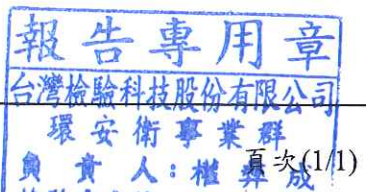 報告專用章
台灣檢驗科技股份有限公司
環安衛事業群
負責人：楊 成
頁次(1/1)